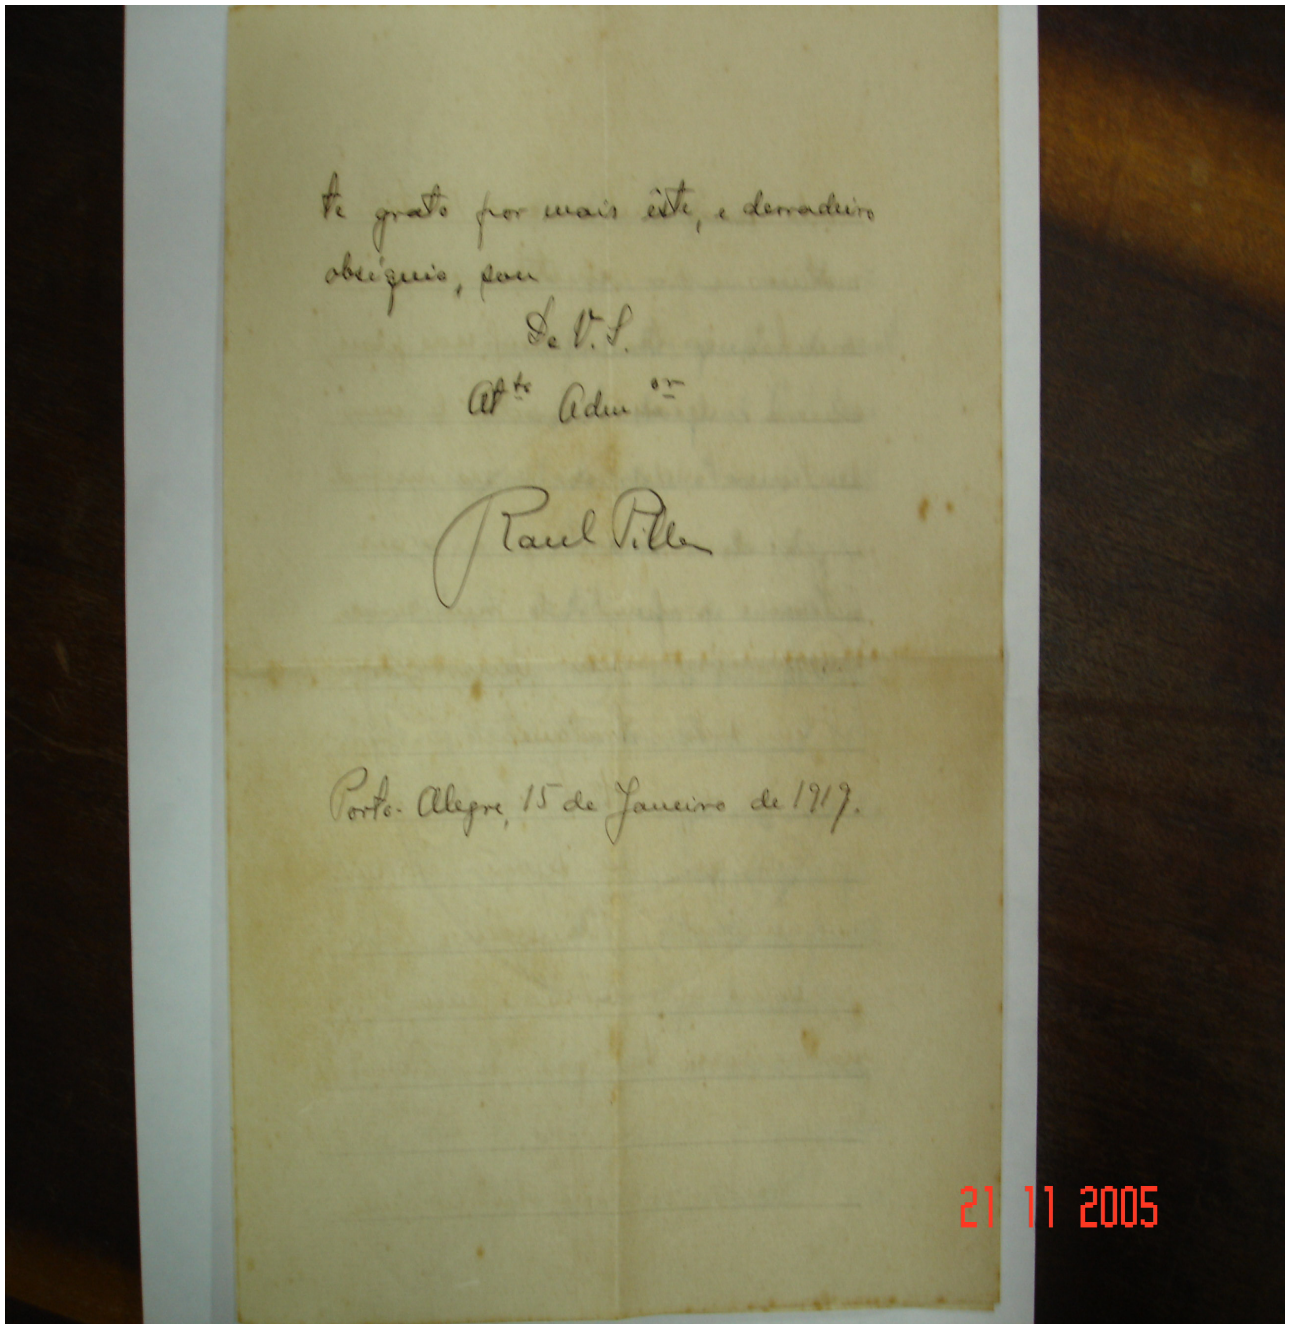 te grato por mais êste, e derradeiro
obséquio, sou
De V. S.
Att.te Adm.or
Raul Pilla
Porto-Alegre, 15 de Janeiro de 1919.
21 11 2005